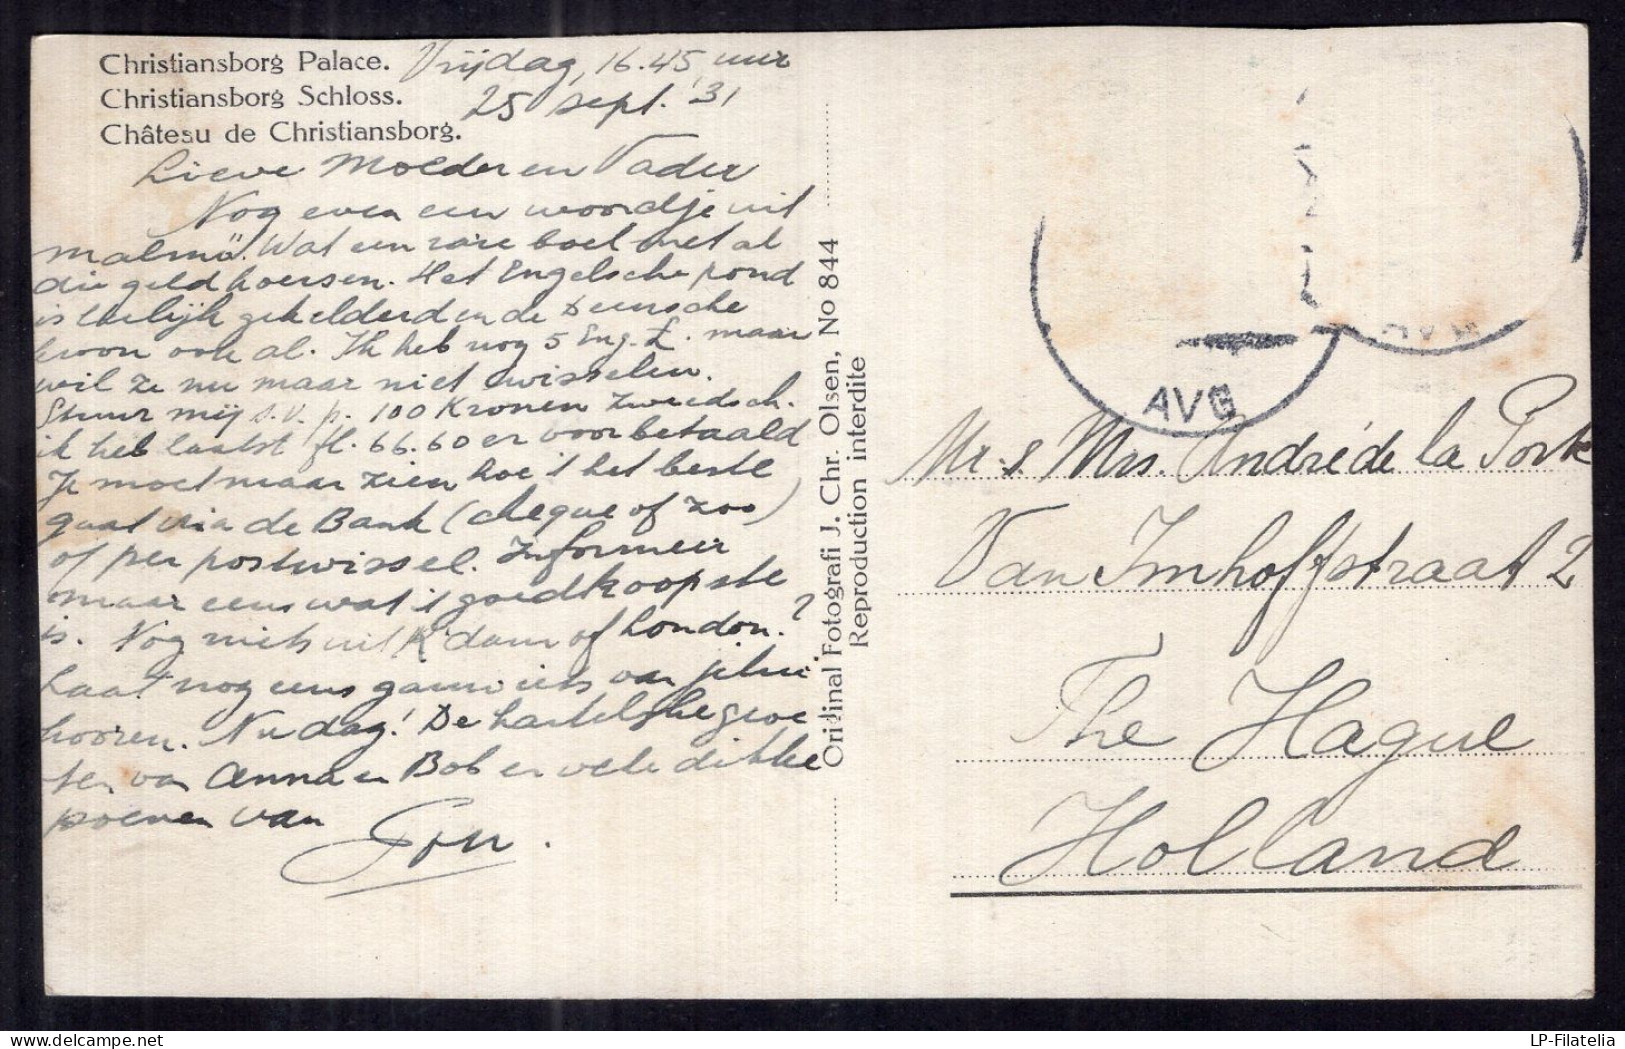 Christiansborg Palace.
Christiansborg Schloss.
Château de Christiansborg.
Vrijdag, 16.45 uur
25 sept. '31
Lieve Moeder en Vader
Nog even een woordje uit
Malmö. Wat een rare boel met al
die geldkoersen. Het Engelsche pond
is leelijk gekelderd en de Deensche
kroon ook al. Ik heb nog 5 Eng. £. maar
wil ze nu maar niet wisselen.
Stuur mij s.v.p. 100 Kronen Zweedsch.
ik heb laatst fl. 66.60 er voor betaald
Je moet maar zien hoe 't het beste
gaat via de Bank (cheque of zoo)
of per postwissel. Informeer
maar eens wat 't goedkoopste
is. Nog niets uit A'dam of London?
Laat nog eens gauw iets van jullie
hooren. Nu dag! De hartelijke groe
ten van Anna en Bob en vele dikke
poenen van
Original Fotografi J. Chr. Olsen, No 844
Reproduction interdite
AVG
Mr. & Mrs. André de la Porte
Van Imhoffstraat 2
The Hague
Holland
LP-Filatelia